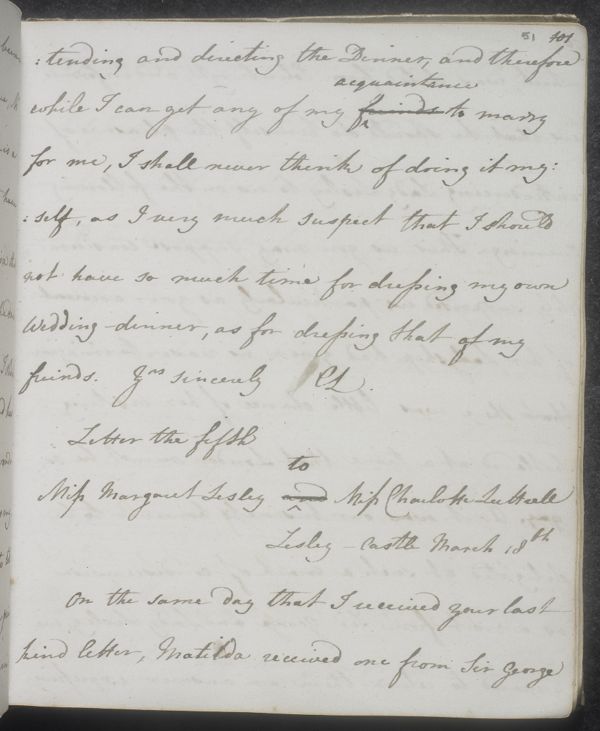 51 101
:tending and directing the Dinner, and therefore
acquaintance
while I can get any of my freinds to marry
for me, I shall never think of doing it my:
:self, as I very much suspect that I should
not have so much time for dressing my own
Wedding-dinner, as for dressing that of my
freinds. Yrs sincerely CL.
Letter the fifth
to
Miss Margaret Lesley and Miss Charlotte Luttrell
Lesley-castle March 18th
On the same day that I received your last
kind letter, Matilda received one from Sir George